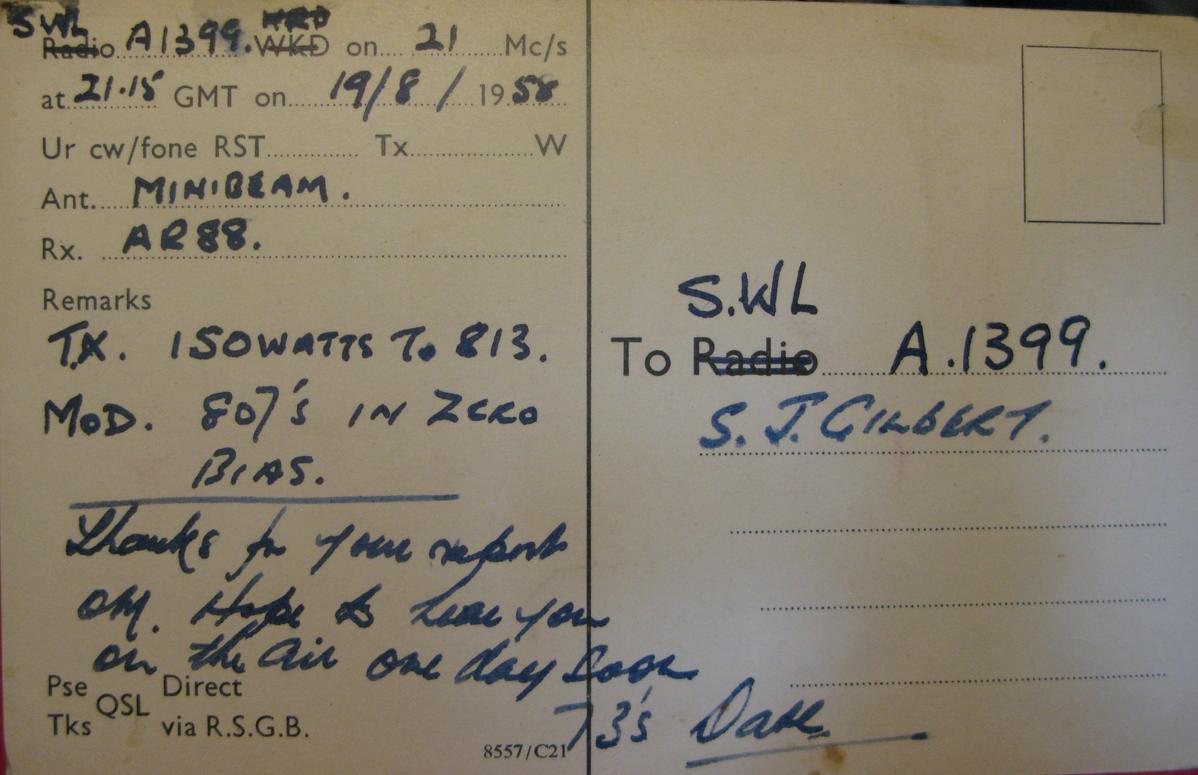 SWL HRD
Radio A1399. WKD on 21 Mc/s
at 21.15 GMT on 19/8/1958
Ur cw/fone RST Tx W
Ant. MINIBEAM.
Rx. AR88.
Remarks
TX. 150WATTS To 813.
MOD. 807's IN ZERO
BIAS.
Thanks for your report
OM. Hope to hear you
on the air one day soon
73's Dave
Pse QSL Direct
Tks via R.S.G.B.
8557/C21
S.WL
To Radio A.1399.
S. J. GILBERT.